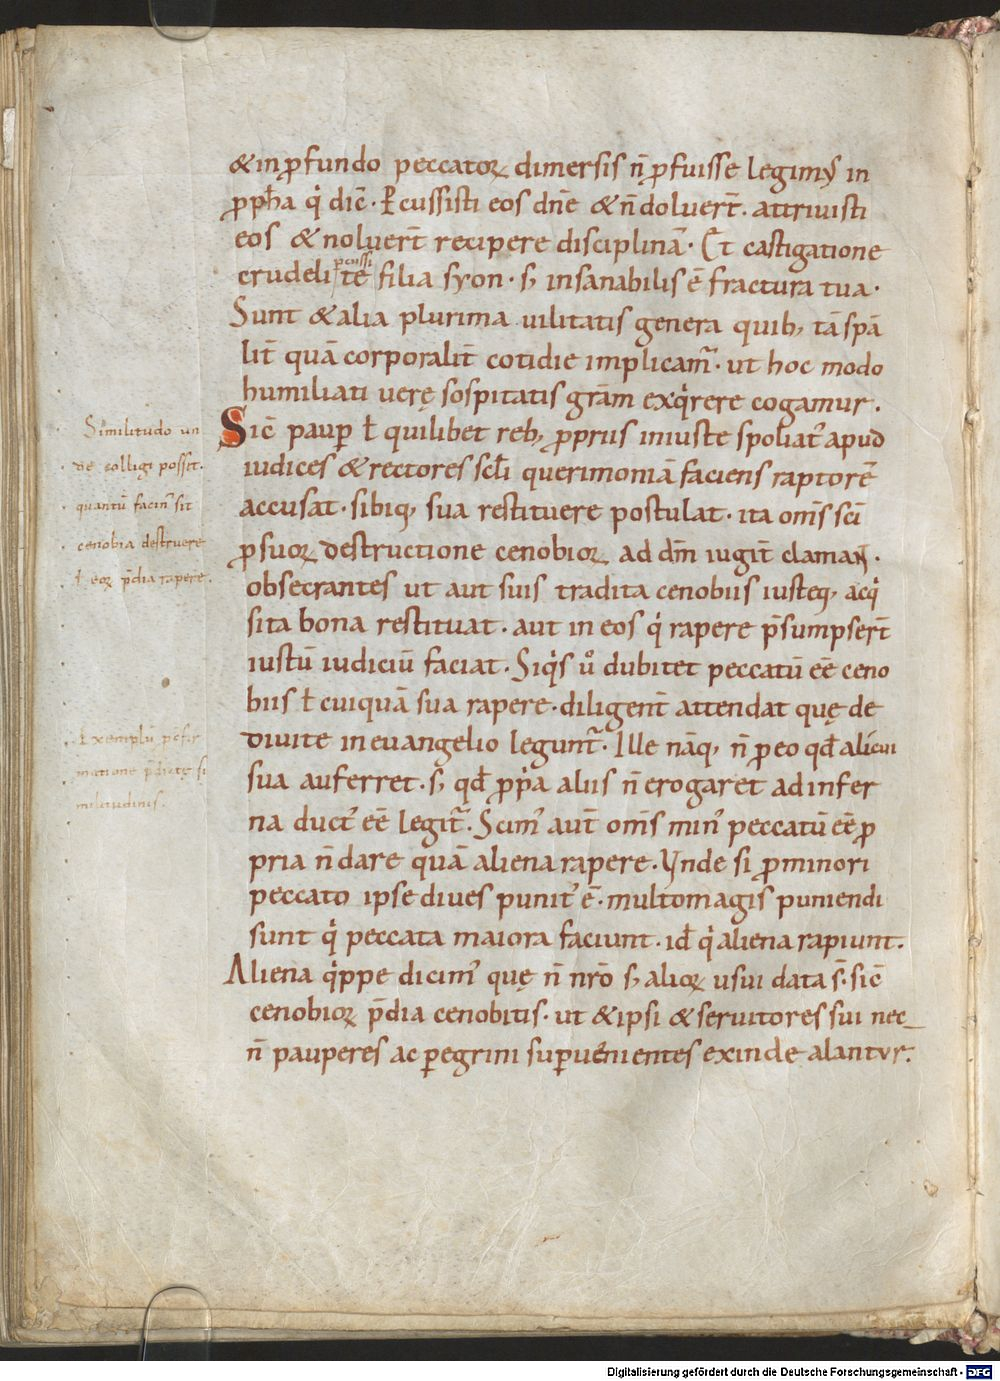 &in ꝓfundo peccatoꝝ dimersis n̄ ꝓfuisse legimꝰ in
ꝓph̄a q̇ dic̄. Ꝑcussisti eos dn̄e & n̄ doluer̄t. attriuisti
eos & noluer̄t recipere disciplinā. Et castigatione
crudeli ꝑcussi te filia syon. s; insanabilis ē fractura tua.
Sunt & alia plurima uilitatis genera quib; tā spā
lit̄ quā corporalit̄ cotidie implicam̄. ut hoc modo
humiliati uerę sospitatis grām exq̇rere cogamur.
Similitudo un
de colligi possit.
quantū facin' sit
cenobia destruere
ł eoꝝ p̄dia rapere.
Sic̄ paup̄ ł quilibet reb; ꝓpriis iniuste spoliat' apud
iudices & rectores scl̄i querimoniā faciens raptorē
accusat. sibiq; sua restituere postulat. ita om̄s sc̄i
ꝓ suoꝝ destructione cenobioꝝ ad dm̄ iugit̄ clamaɴ̄.
obsecrantes ut aut suis tradita cenobiis iusteq; acq̇
sita bona restituat. aut in eos q̇ rapere p̄sumpser̄t
iustū iudiciū faciat. Siq̇s u° dubitet peccatū eē ceno
biis ł cuiquā sua rapere. diligent̄ attendat quę de
Exemplū ꝓ cfir
matione p̄dictę si
militudinis.
diuite in euangelio legunt̄. Ille nāq; n̄ ꝓ eo qđ alicui
sua auferret. s; qđ ꝓpi̇a aliis n̄ erogaret ad infer
na duct' eē legit̄. Scim' aut̄ om̄s min' peccatū eē ꝓ
pria n̄ dare quā aliena rapere. Vnde si ꝓ minori
peccato ipse diues punit' ē. multomagis puniendi
sunt q̇ peccata maiora faciunt. id q̇ aliena rapiunt.
Aliena q̇ppe dicim' quę n̄ nr̄o s; alioꝝ usui data s̄. sic̄
cenobioꝝ p̄dia cenobitis. ut & ipsi & seruitores sui nec_
n̄ pauperes ac ꝑegrini suꝑuenientes exinde alantur.
Digitalisierung gefördert durch die Deutsche Forschungsgemeinschaft - DFG